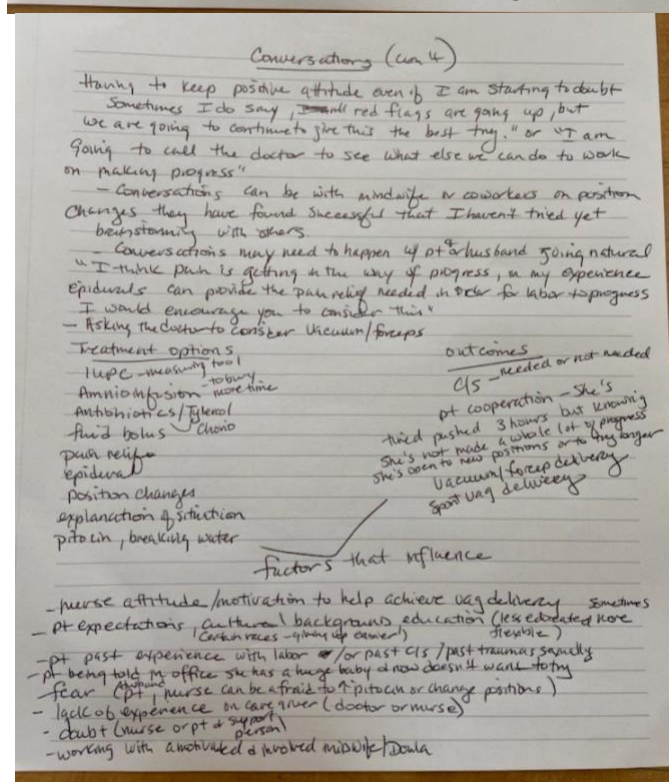 Conversations (con 4)
Having to keep positive attitude even if I am starting to doubt
Sometimes I do say, red flags are going up, but
we are going to continue to give this the best try." or "I am
Going to call the doctor to see what else we can do to work
on making progress"
- Conversations can be with midwife or coworkers on position
changes they have found successful that I haven't tried yet
brainstorming with others.
- Conversations may need to happen w/ pt & or husband going natural
"I think pain is getting in the way of progress, in my experience
epidurals can provide the pain relief needed in order for labor to progress
I would encourage you to consider this"
- Asking the doctor to consider vacuum/forceps
Treatment options
IUPC - measuring tool
Amnioinfusion - to buy more time
Antibiotics/Tylenol
Chorio
fluid bolus
pain relief
epidural
position changes
explanation of situation
pitocin, breaking water
outcomes
C/S - needed or not needed
pt cooperation - She's
tired pushed 3 hours but knowing
She's not made a whole lot of progress
She's open to new positions or to try longer
Vacuum/forcep delivery
Spont vag delivery
factors that influence
- nurse attitude/motivation to help achieve vag delivery
- pt expectations, cultural background, education (less educated more flexible) sometimes
(certain races - giving up easier)
- pt past experience with labor or past c/s / past traumas
- pt being told in office she has a huge baby & now doesn't want to try
- fear (pt, nurse can be afraid to ↑ pitocin or change positions)
- lack of experience on care giver (doctor or nurse)
- doubt (nurse or pt & support person)
- working with a motivated & involved midwife/Doula